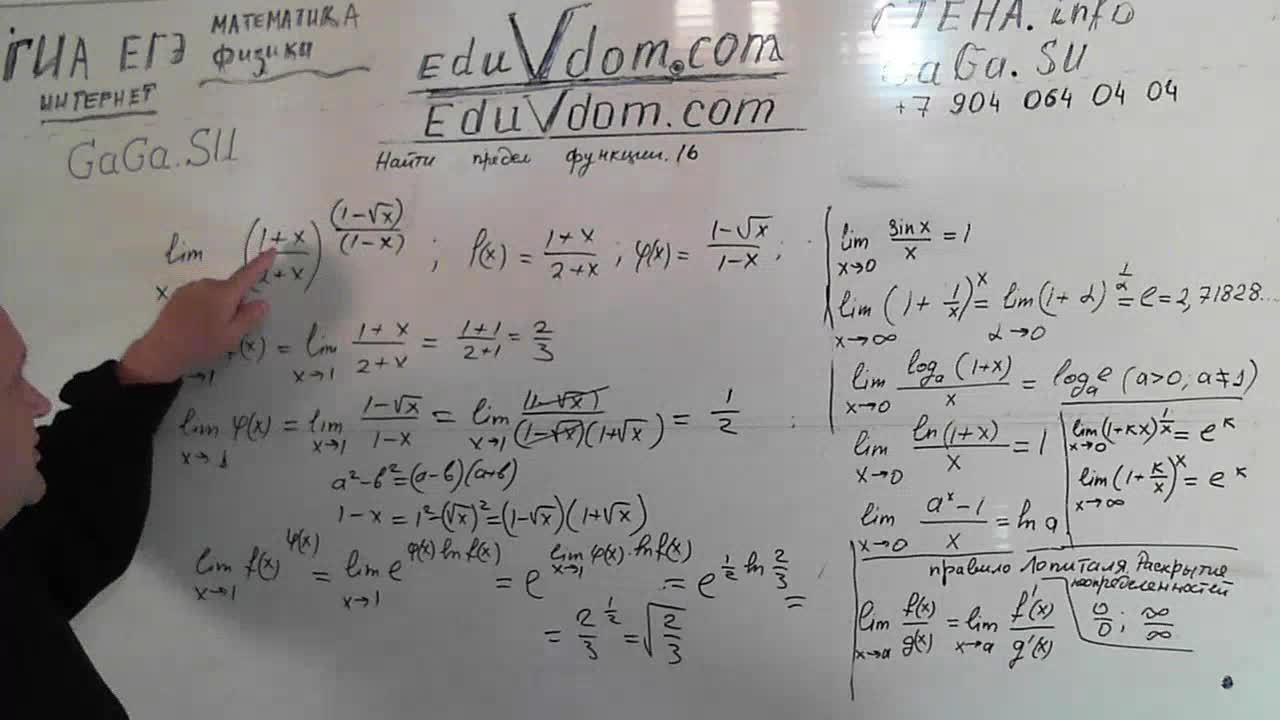 ГИА ЕГЭ МАТЕМАТИКА
физики
ИНТЕРНЕТ
GaGa.SU
EduVdom.com
EduVdom.com
Найти предел функции. 16
СТЕНА.info
GaGa.SU
+7 904 064 04 04
lim x ((1+x)/(2+x))^((1-√x)/(1-x)) ; f(x) = (1+x)/(2+x) ; φ(x) = (1-√x)/(1-x) ;
(x) = lim x→1 (1+x)/(2+x) = (1+1)/(2+1) = 2/3
lim x→1 φ(x) = lim x→1 (1-√x)/(1-x) = lim x→1 (1-√x)/((1-√x)(1+√x)) = 1/2
a²-b²=(a-b)(a+b)
1-x = 1²-(√x)²=(1-√x)(1+√x)
lim x→1 f(x)^φ(x) = lim x→1 e^(φ(x) ln f(x)) = e^(lim x→1 φ(x)·ln f(x)) = e^(1/2 ln 2/3) =
= 2/3^(1/2) = √(2/3)
lim x→0 sin x/x = 1
lim x→∞ (1+1/x)^x = lim α→0 (1+α)^(1/α) = e = 2,71828...
lim x→0 log_a(1+x)/x = log_a e (a>0, a≠1)
lim x→0 ln(1+x)/x = 1
lim x→0 (a^x-1)/x = ln a
lim x→0 (1+кx)^(1/x) = e^к
lim x→∞ (1+к/x)^x = e^к
правило Лопиталя. Раскрытие
неопределенностей
lim x→a f(x)/g(x) = lim x→a f'(x)/g'(x) 0/0 ; ∞/∞